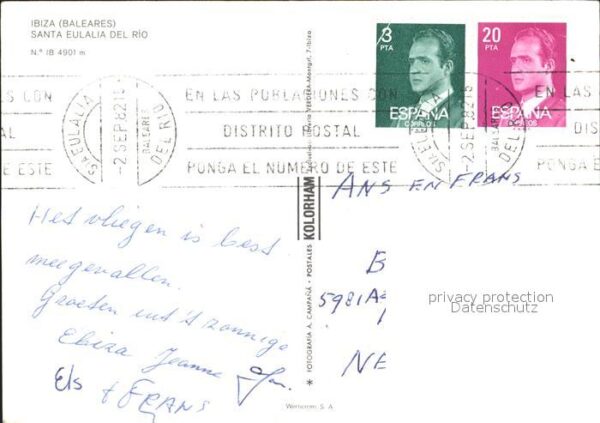 IBIZA (BALEARES)
SANTA EULALIA DEL RÍO
N.º IB 4901 m
3 PTA
ESPAÑA
CORREOS
20 PTA
ESPAÑA
CORREOS
STA EULALIA
-2 SEP. 82 18
BALEARES
DEL RIO
EN LAS POBLACIONES CON
DISTRITO POSTAL
PONGA EL NUMERO DE ESTE
STA EULALIA
-2 SEP. 82 18
BALEARES
DEL RIO
ES CON
TAL
DE ESTE
EN LAS PO
DISTRIT
PONGA EL NU
Het vliegen is best
meegevallen.
Groeten uit 't zonnige
Ebiza Jeanne
Els + FRANS
ANS EN FRANS
B
5981A
NE
privacy protection
Datenschutz
KOLORHAM
* FOTOGRAFIA A. CAMPAÑA - POSTALES
7-Ibiza
Werncrom S. A.